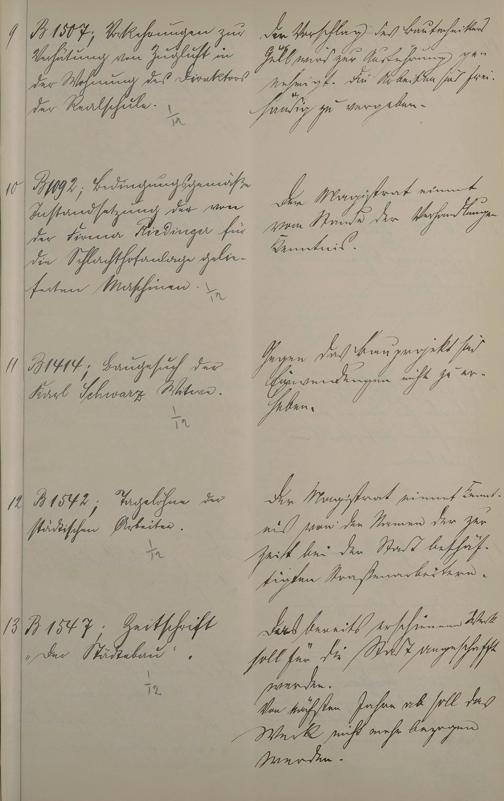 9 B 1507; Vorkehrungen zur
Verhütung von Zugluft in
der Wohnung des Direktors
der Realschule.
1/12
Der Vorschlag des Bautechnikers
wird zur Ausführung ge-
nehmigt. Die Arbeiten sind frei-
händig zu vergeben.
10 B 1092; Bedingungsgemäße
Instandsetzung der von
der Firma Riedinger für
die Schlachthofanlage gelie-
ferten Maschinen.
1/12
Der Magistrat nimmt
vom Stande der Verhandlungen
Kenntnis.
11 B 1414; Baugesuch der
Karl Schwarz Witwe.
1/12
Gegen das Bauprojekt sind
Einwendungen nicht zu er-
heben.
12 B 1542; Tagelöhne der
städtischen Arbeiter.
1/12
Der Magistrat nimmt Kennt-
nis von den Namen der zur
Zeit bei der Stadt beschäf-
tigten Strassenarbeitern.
13 B 1547; Zeitschrift
„Der Städtebau".
1/12
Das bereits erschienene Werk
soll für die Stadt angeschafft
werden.
Von nächsten Jahre ab soll das
Werk nicht mehr bezogen
werden.